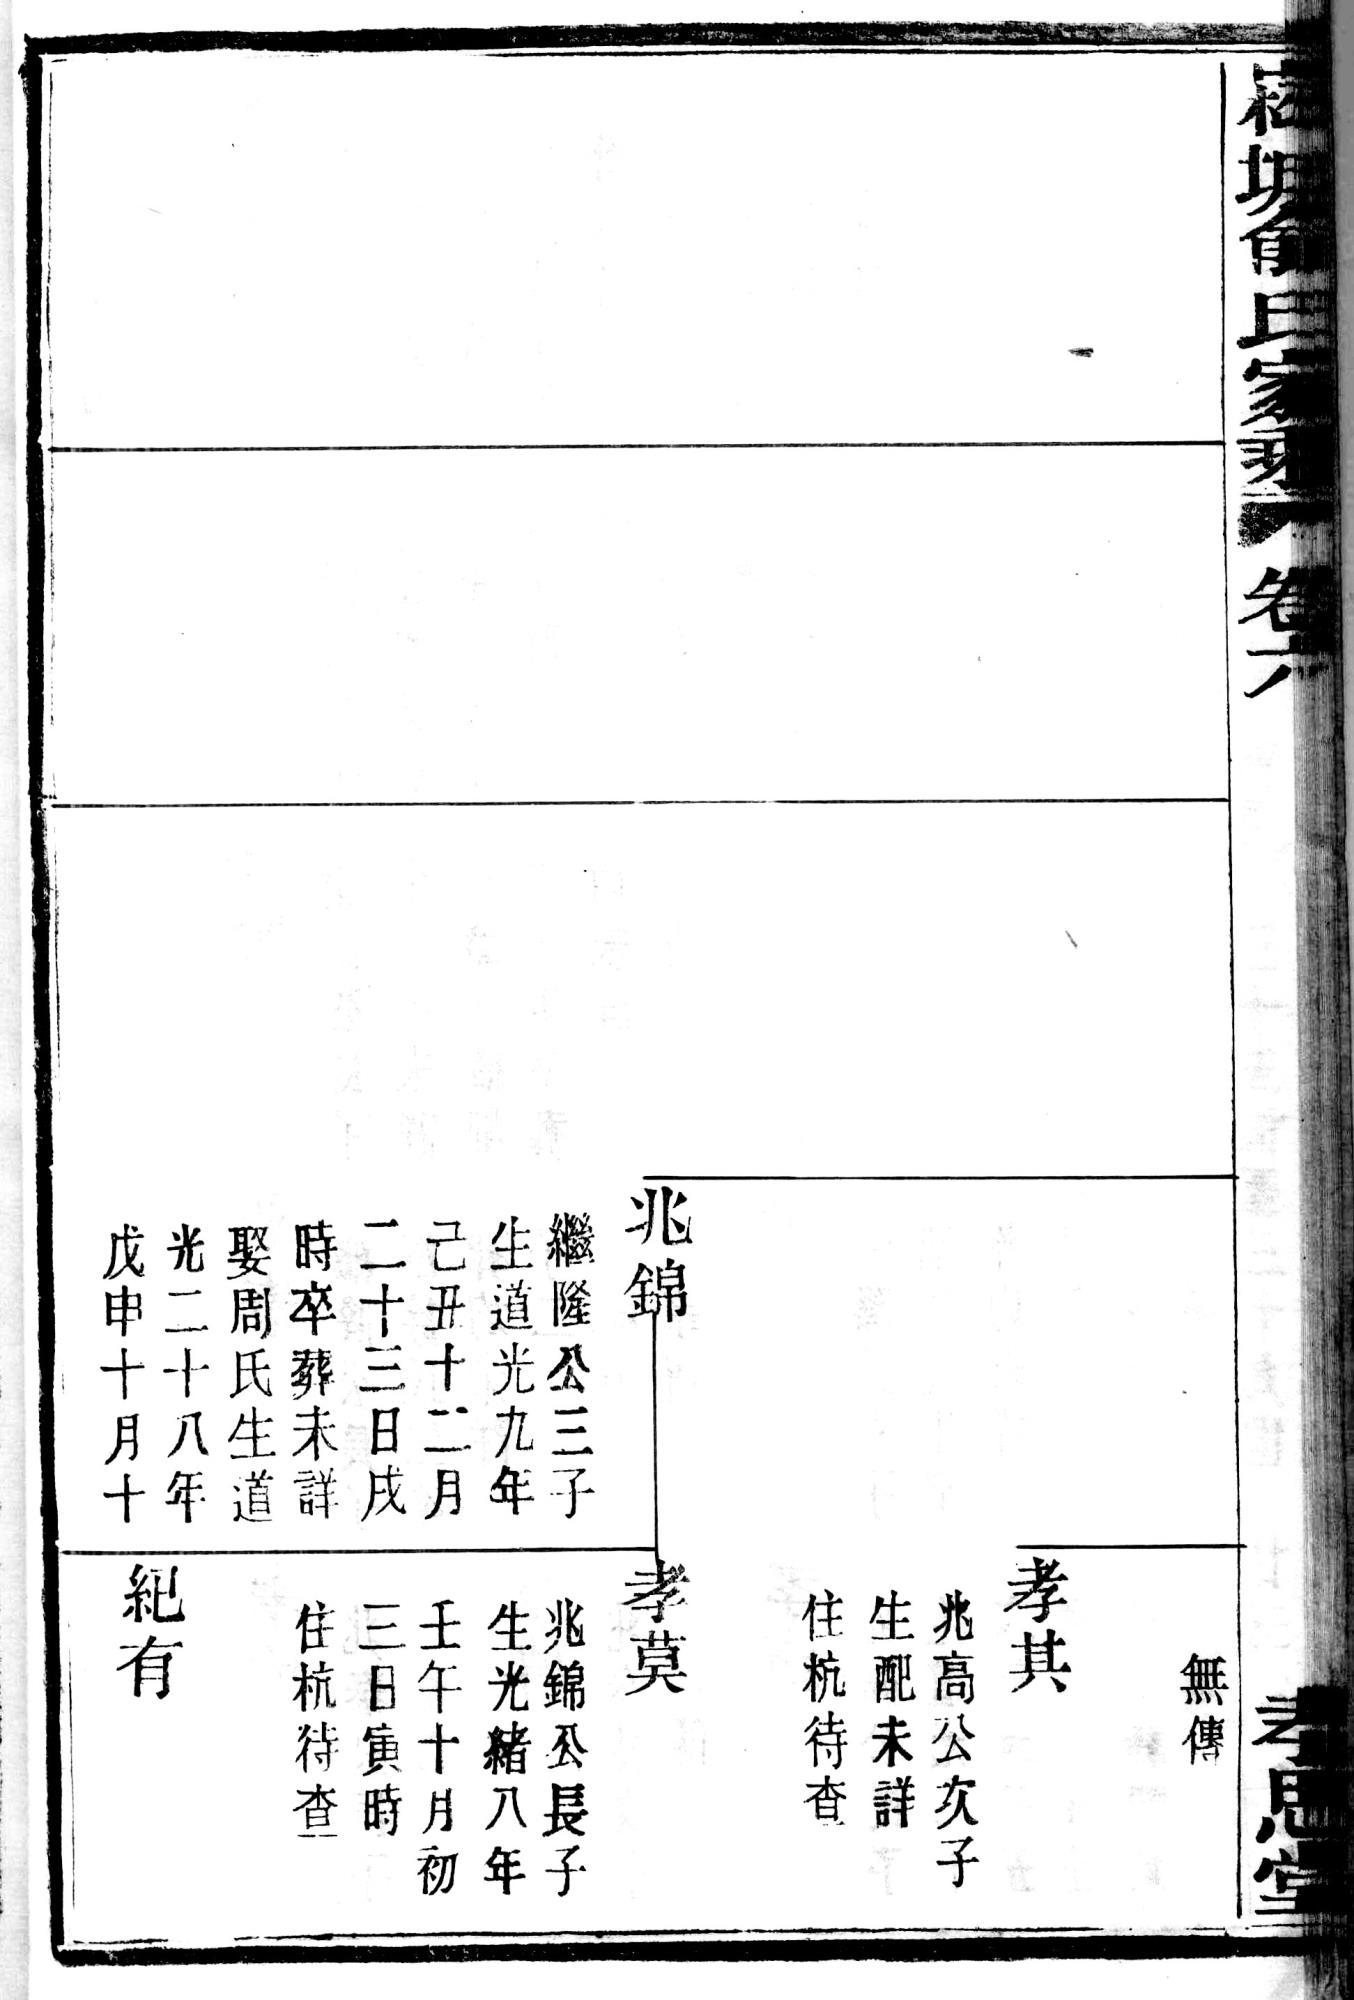 氏家乘 卷六
孝思堂
無傳
孝其
兆高公次子
生配未詳
住杭待查
兆錦
繼隆公三子
生道光九年
己丑十二月
二十三日戌
時卒葬未詳
娶周氏生道
光二十八年
戊申十月十
孝莫
兆錦公長子
生光緒八年
壬午十月初
三日寅時
住杭待查
紀有